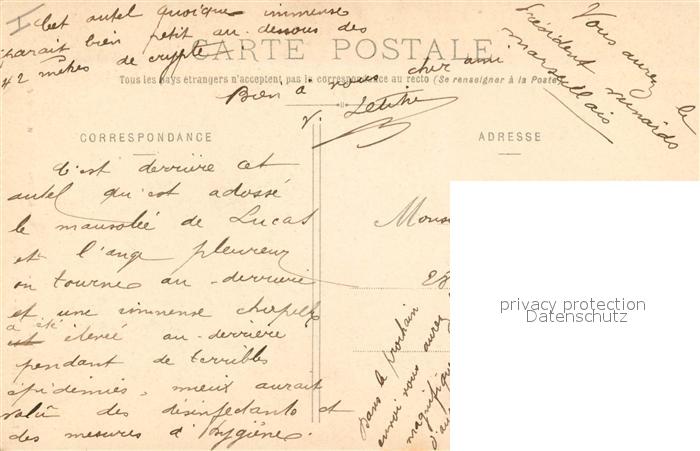 Cet autel quoique immense
parait bien petit au-dessous des
42 mètres de crypte
Bien à vous cher ami
V.
Vous aurez le
président
marseillais
CARTE POSTALE
Tous les pays étrangers n'acceptent pas la correspondance au recto (Se renseigner à la Poste)
CORRESPONDANCE
ADRESSE
C'est derrière cet
autel qu'est adossé
le mausolée de Lucas
et l'ange pleureur
on tourne au-derrière
et une immense chapelle
a été
élevée au-derrière
pendant de terribles
épidémies, mieux aurait
valû des désinfectants et
des mesures d'hygiène.
Mons
Dans le prochain
envoi vous aurez
magnifique
d'au
privacy protection
Datenschutz